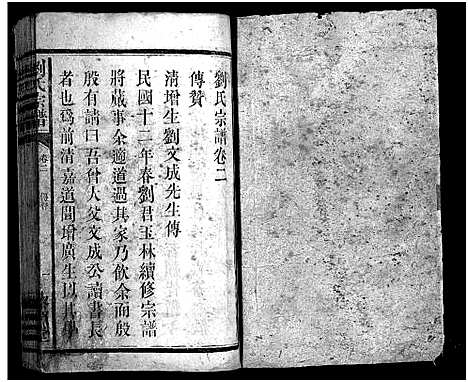 劉氏宗譜卷二
傳贊
清增生劉文成先生傳
民國十二年春劉君玉林續修宗譜
將蕆事余適道過其家乃飲余而殷
殷有請曰吾曾大父文成公讀書長
者也爲前清嘉道間增廣生以
劉氏宗譜
卷二